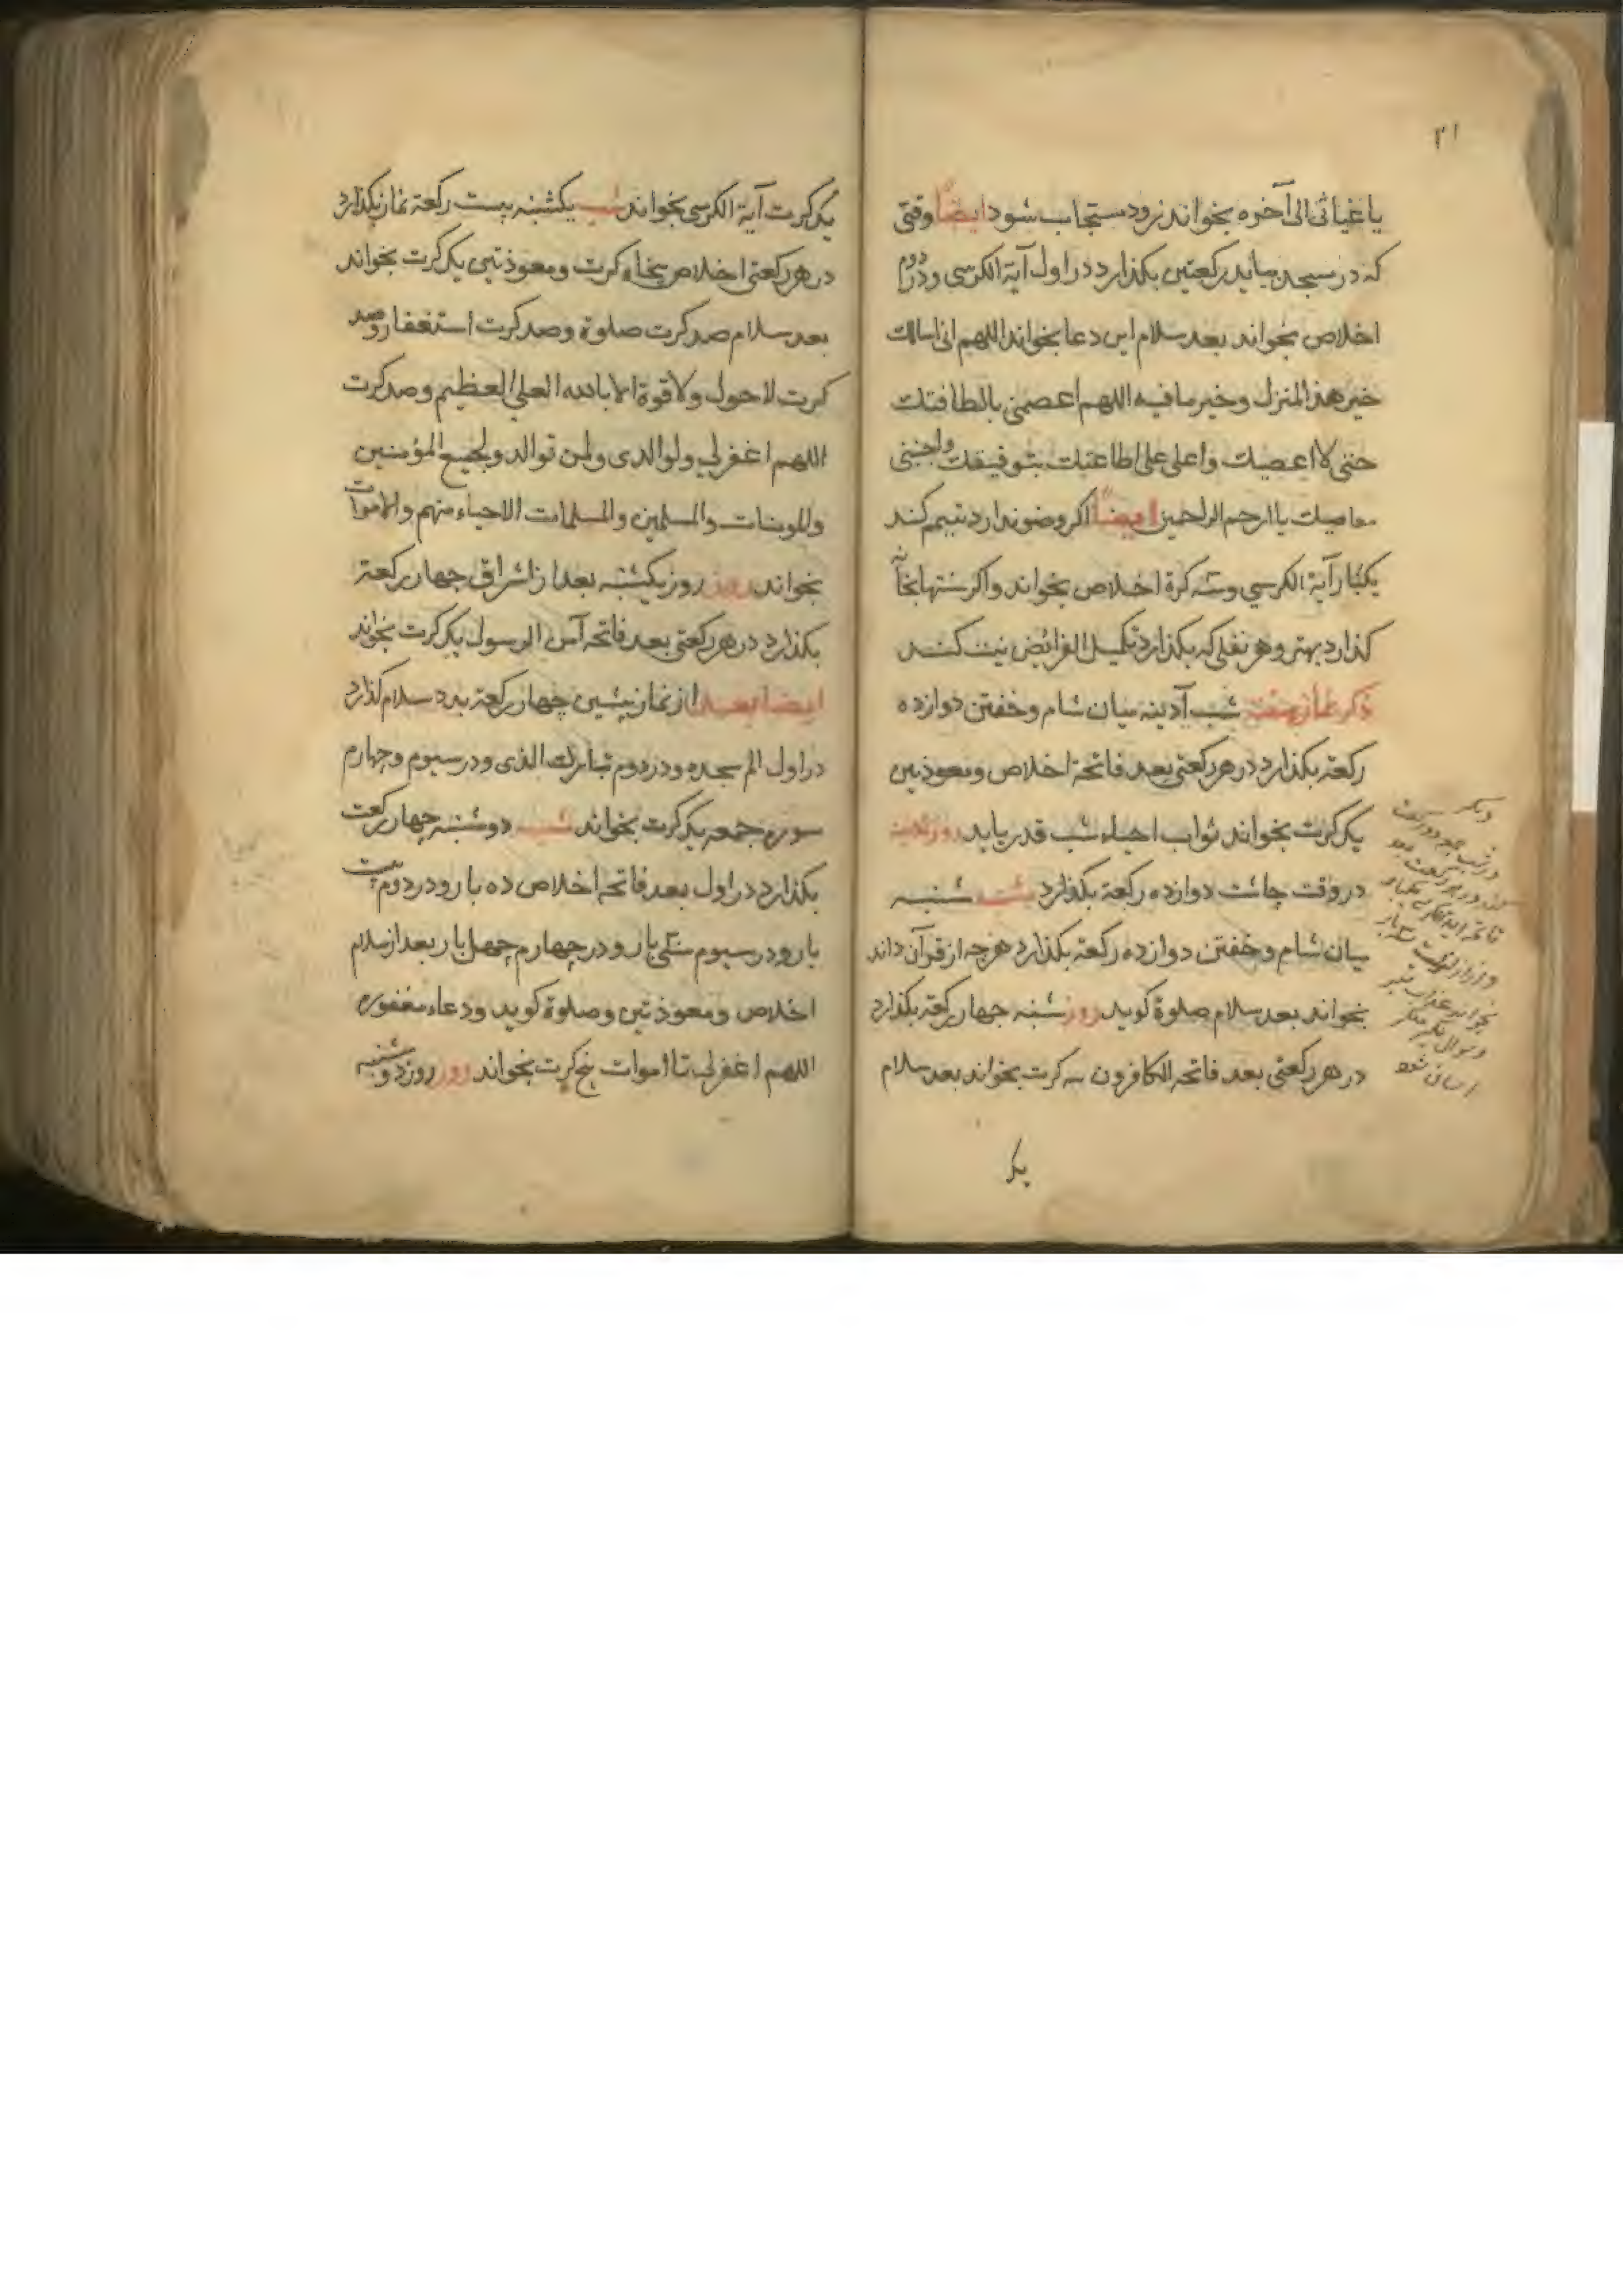 ۳۱
یا غیاثی الی آخره بخواند زود مستجاب شود ایضاً وقتی
که در مسجد بیاید رکعتین بکذارد در اول آیة الکرسی و در دوم
اخلاص بخواند بعد سلام این دعا بخواند اللهم انی اسالک
خیر هذا المنزل وخیر ما فیه اللهم اعصمنی بالطافتک
حتی لا اعصیک واعلی علی اطاعتک بتوفیقک واجنبنی
معاصیک یا ارحم الراحمین ایضاً اکر وضو ندارد تیمم کند
یکبار آیة الکرسی وسه کرة اخلاص بخواند واکر سنتها بخانه
کذارد بهتر وهر نفلی که بکذارد تکمیل الفرائض نیت کند
ذکر نماز هفته شب آدینه میان شام وخفتن دوازده
رکعة بکذارد در هر رکعتی بعد فاتحة اخلاص ومعوذتین
یک کرت بخواند ثواب احیاء شب قدر یابد روز آدینه
در وقت چاشت دوازده رکعة بکذارد شب شنبه
میان شام وخفتن دوازده رکعة بکذارد هرچه از قرآن داند
بخواند بعد سلام صلوة کوید روز شنبه چهار رکعة بکذارد
در هر رکعتی بعد فاتحه الکافرون سه کرت بخواند بعد سلام
یک
دیکر
در شب جمعه دو رکعت
در هر رکعت بعد
فاتحه آیة الکرسی یکبار
بخواند عذاب قبر
وسوال نکیر منکر
اسان شود
یک کرت آیة الکرسی بخواند شب یکشنبه بیست رکعة نماز بکذارد
در هر رکعتی اخلاص پنجاه کرت ومعوذتین یک کرت بخواند
بعد سلام صد کرت صلوة وصد کرت استغفار وصد
کرت لا حول ولا قوة الا بالله العلی العظیم وصد کرت
اللهم اغفر لی ولوالدی ولمن توالد ولجمیع المؤمنین
والمومنات والمسلمین والمسلمات الاحیاء منهم والاموات
بخواند روز روز یکشنبه بعد از اشراق چهار رکعة
بکذارد در هر رکعتی بعد فاتحه آمن الرسول یک کرت بخواند
ایضا بعد از نماز پیشین چهار رکعة بدو سلام کذارد
در اول الم سجده ودر دوم تبارک الذی ودر سیوم وچهارم
سوره جمعه یک کرت بخواند شب دوشنبه چهار رکعت
بکذارد در اول بعد فاتحه اخلاص ده بار ودر دوم بیست
بار ودر سیوم سی بار ودر چهارم چهل بار بعد از سلام
اخلاص ومعوذتین وصلوة کوید ودعاء مغفوره
اللهم اغفر لی تا اموات پنج کرت بخواند روز روز دوشنبه